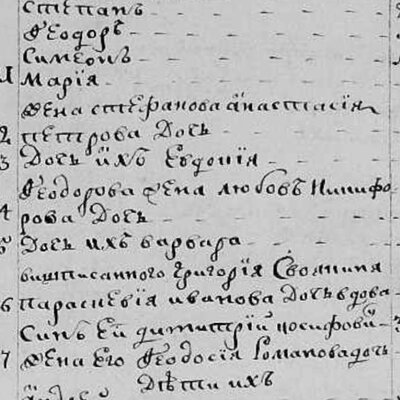 Степанъ
Ѳеодоръ
Симеонъ
Марїя
Жена Стефанова Анастасїя
2 Петрова Дочь
3 Дочь ихъ Евдокїя
Ѳеодорова Жена Любовь Никифо
4 рова Дочь
5 Дочь ихъ Варвара
вишписанного Григорїя Своячиня
6 Параскевїя Иванова Дочь вдова
Синъ Ей Димитрїй Иосифовъ
7 Жена Его Ѳеодосїя Романова дочь
Дѣти ихъ